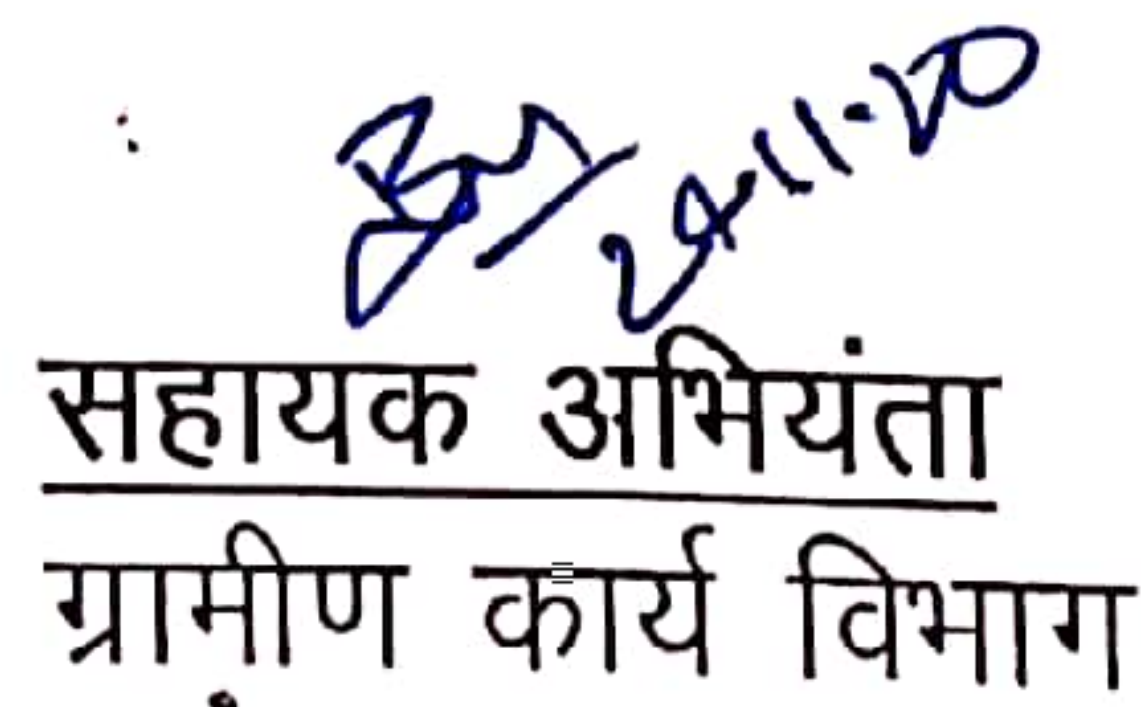 24.11.20
सहायक अभियंता
ग्रामीण कार्य विभाग